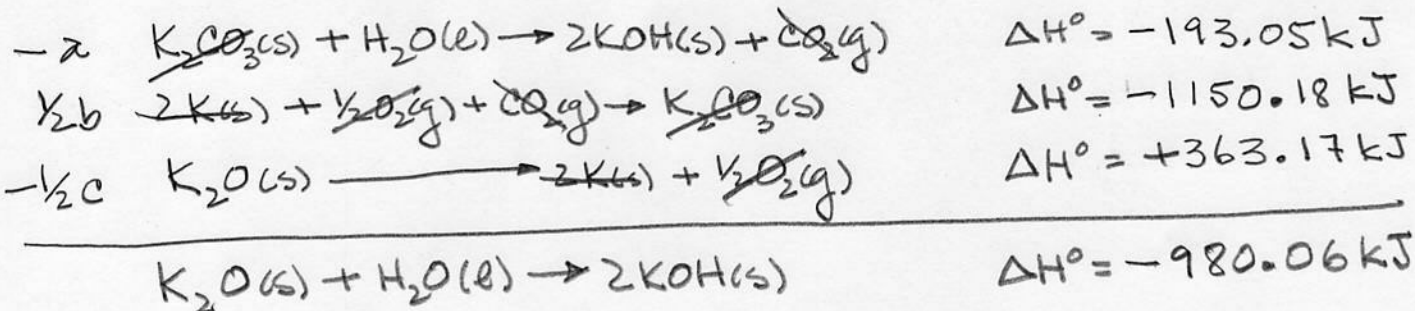 -a K₂CO₃(s) + H₂O(ℓ) → 2KOH(s) + CO₂(g) ΔH° = -193.05 kJ
½b 2K(s) + ½O₂(g) + CO₂(g) → K₂CO₃(s) ΔH° = -1150.18 kJ
-½c K₂O(s) → 2K(s) + ½O₂(g) ΔH° = +363.17 kJ
K₂O(s) + H₂O(ℓ) → 2KOH(s) ΔH° = -980.06 kJ